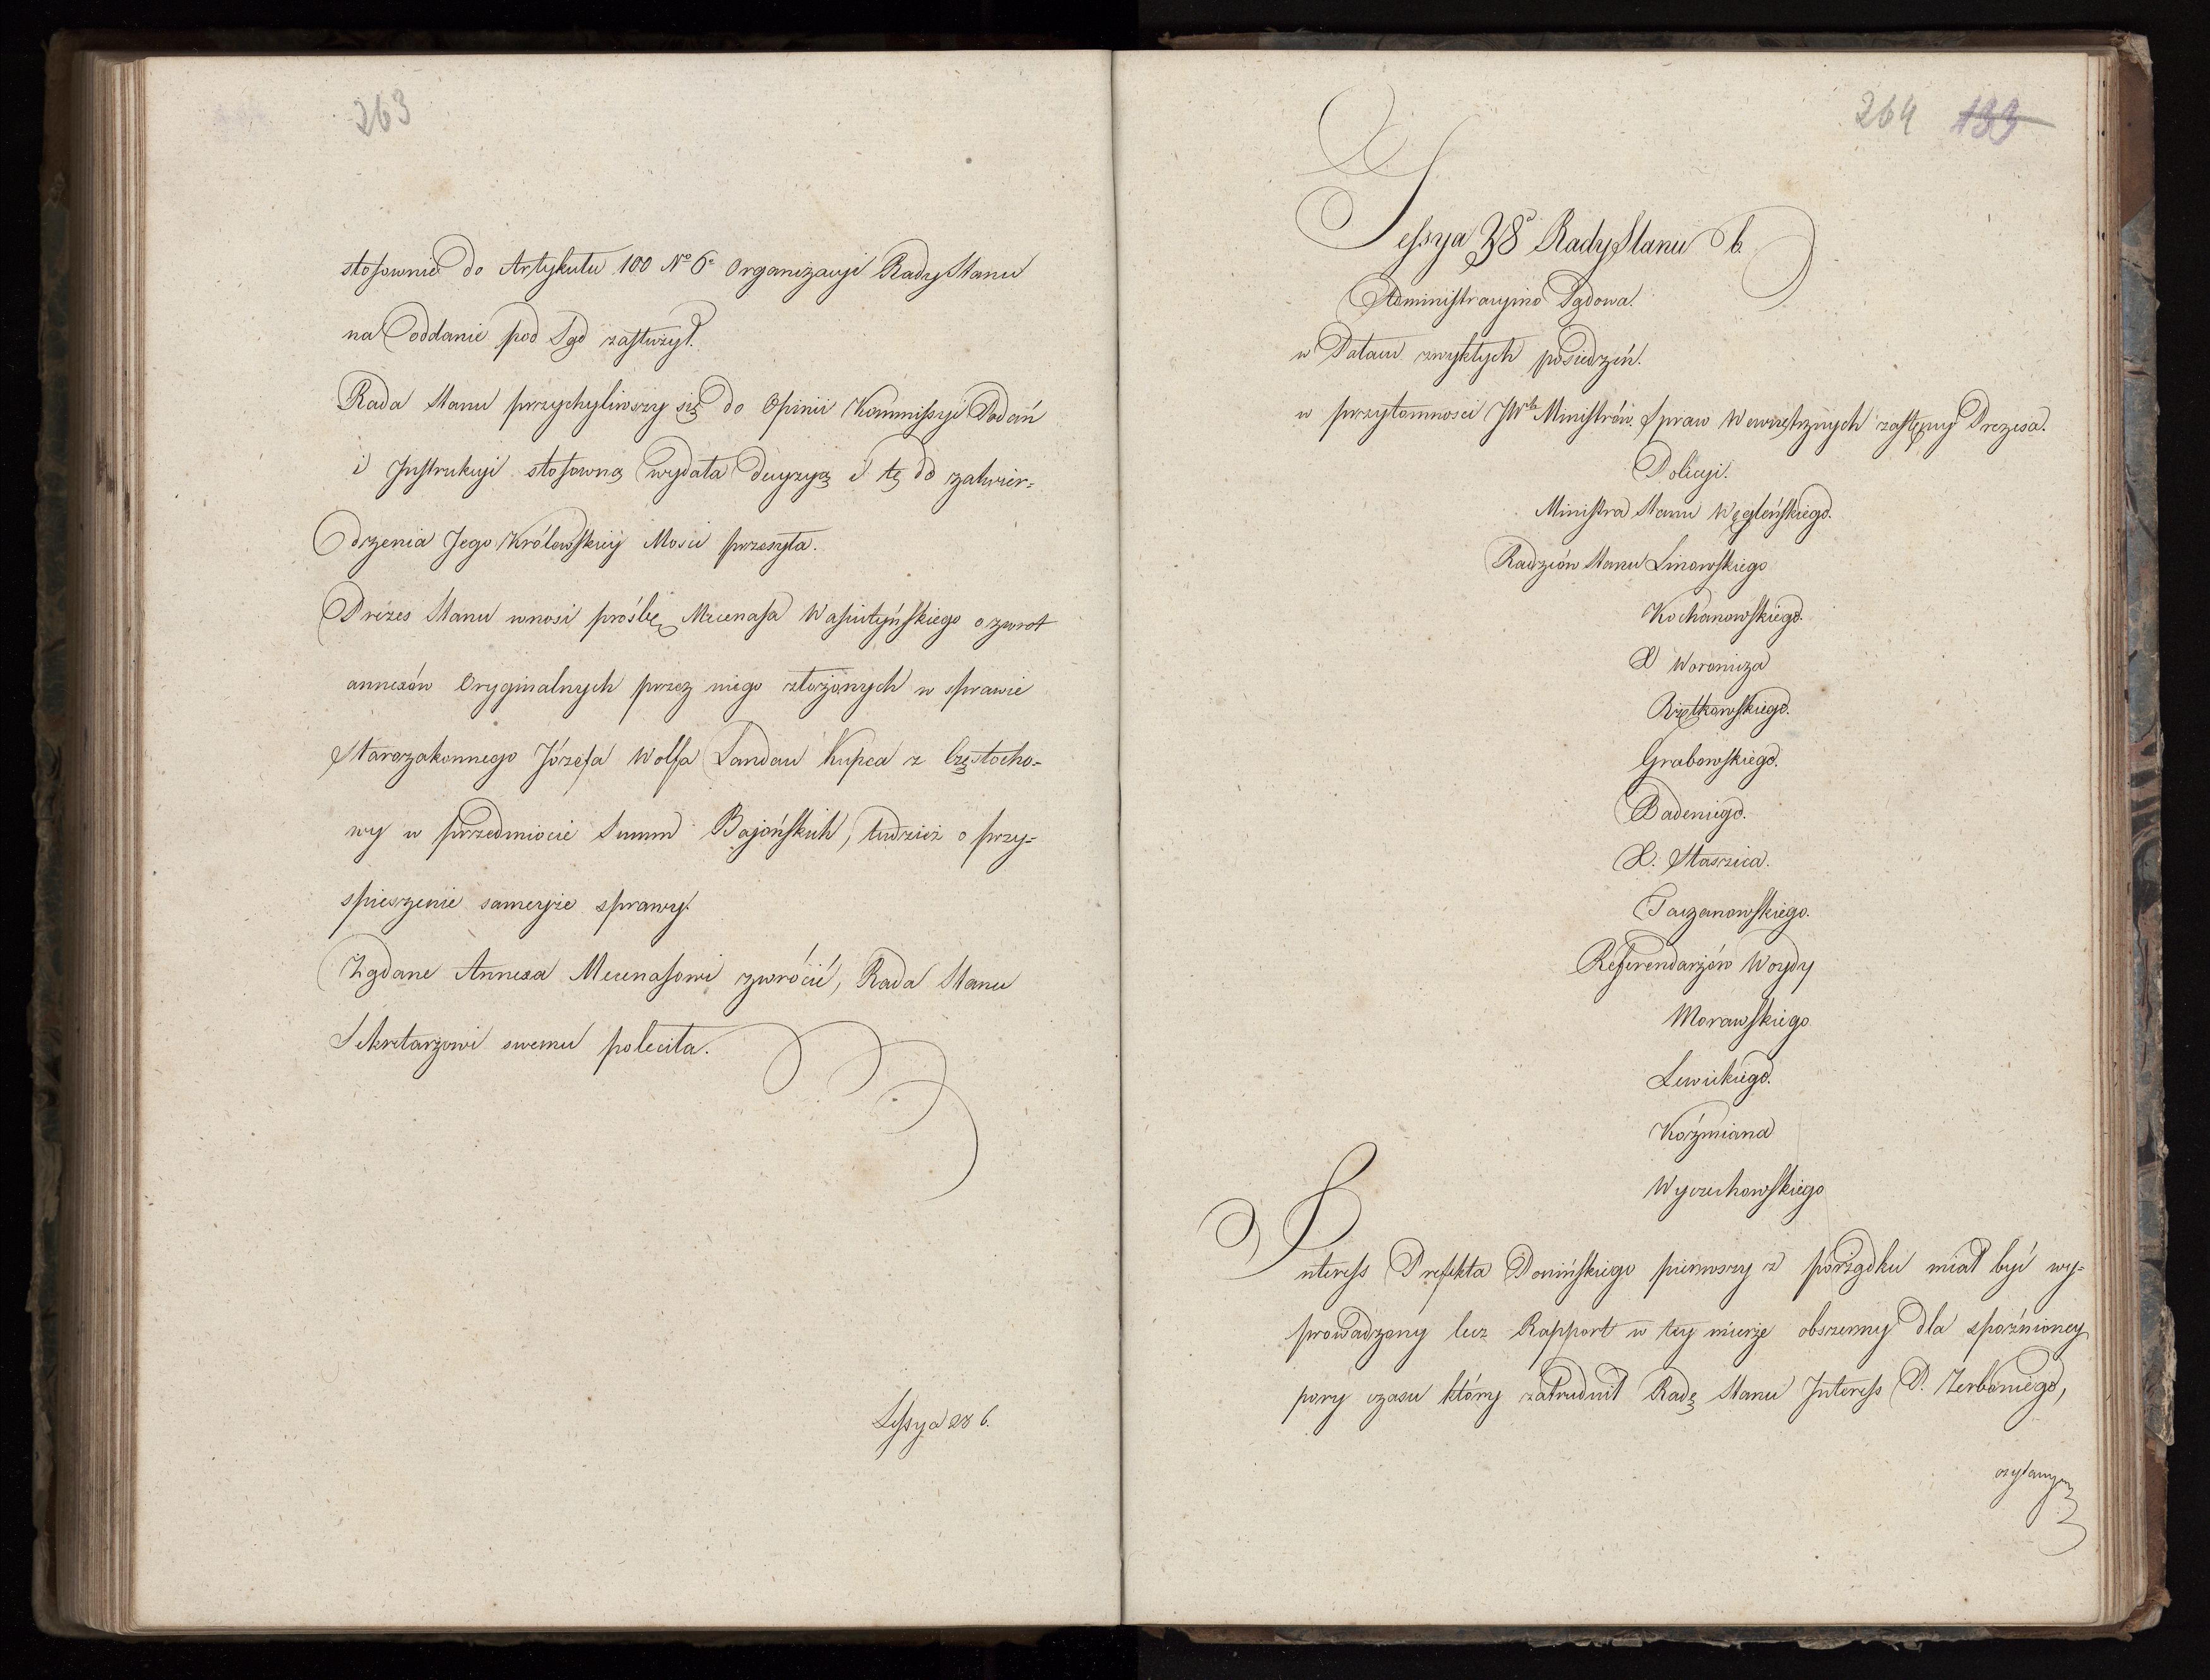 263
stosownie do Artykułu 100 Nº 6º Organizacyi Rady Stanu
na oddanie pod Sąd zasłużył.
Rada Stanu przychyliwszy się do Opinii Kommissyi Podań
i Instrukcyi stosowną wydała decyzyą i tę do zatwier=
drzenia Jego Królewskiey Mości przesyła.
Prezes Stanu wnosi prośbę Mecenasa Wasiutyńskiego o zwrot
annexów Oryginalnych przez niego złożonych w sprawie
Starozakonnego Józefa Wolfa Landau Kupca z Częstocho=
wy w przedmiocie Summ Bajońskich, tudzież o przy=
spieszenie sameyże sprawy.
Żądane Annexa Mecenasowi zwrócić, Rada Stanu
Sekretarzowi swemu poleciła.
Sessya 28 b.
264 133
Sessya 38ª Rady Stanu b.
Administracyino Sądowa.
w Pałacu zwykłych posiedzeń.
w przytomności JWch Ministrów Spraw Wewnętrznych zastępcy Prezesa.
Policyi.
Ministra Stanu Węgleńskiego.
Radzców Stanu Linowskiego
Kochanowskiego.
X Woronicza
Bieńkowskiego.
Grabowskiego.
Badeniego.
X. Staszica.
Taczanowskiego.
Referendarzów Woydy
Morawskiego
Lewickiego.
Koźmiana
Wyczechowskiego
Interess Prefekta Ponińskiego pierwszy z porządku miał być wy=
prowadzony lecz Rapport w tey mierze obszerny dla spoźnioney
pory czasu który zatrudnił Radę Stanu Interess P. Zerboniego,
czytanym